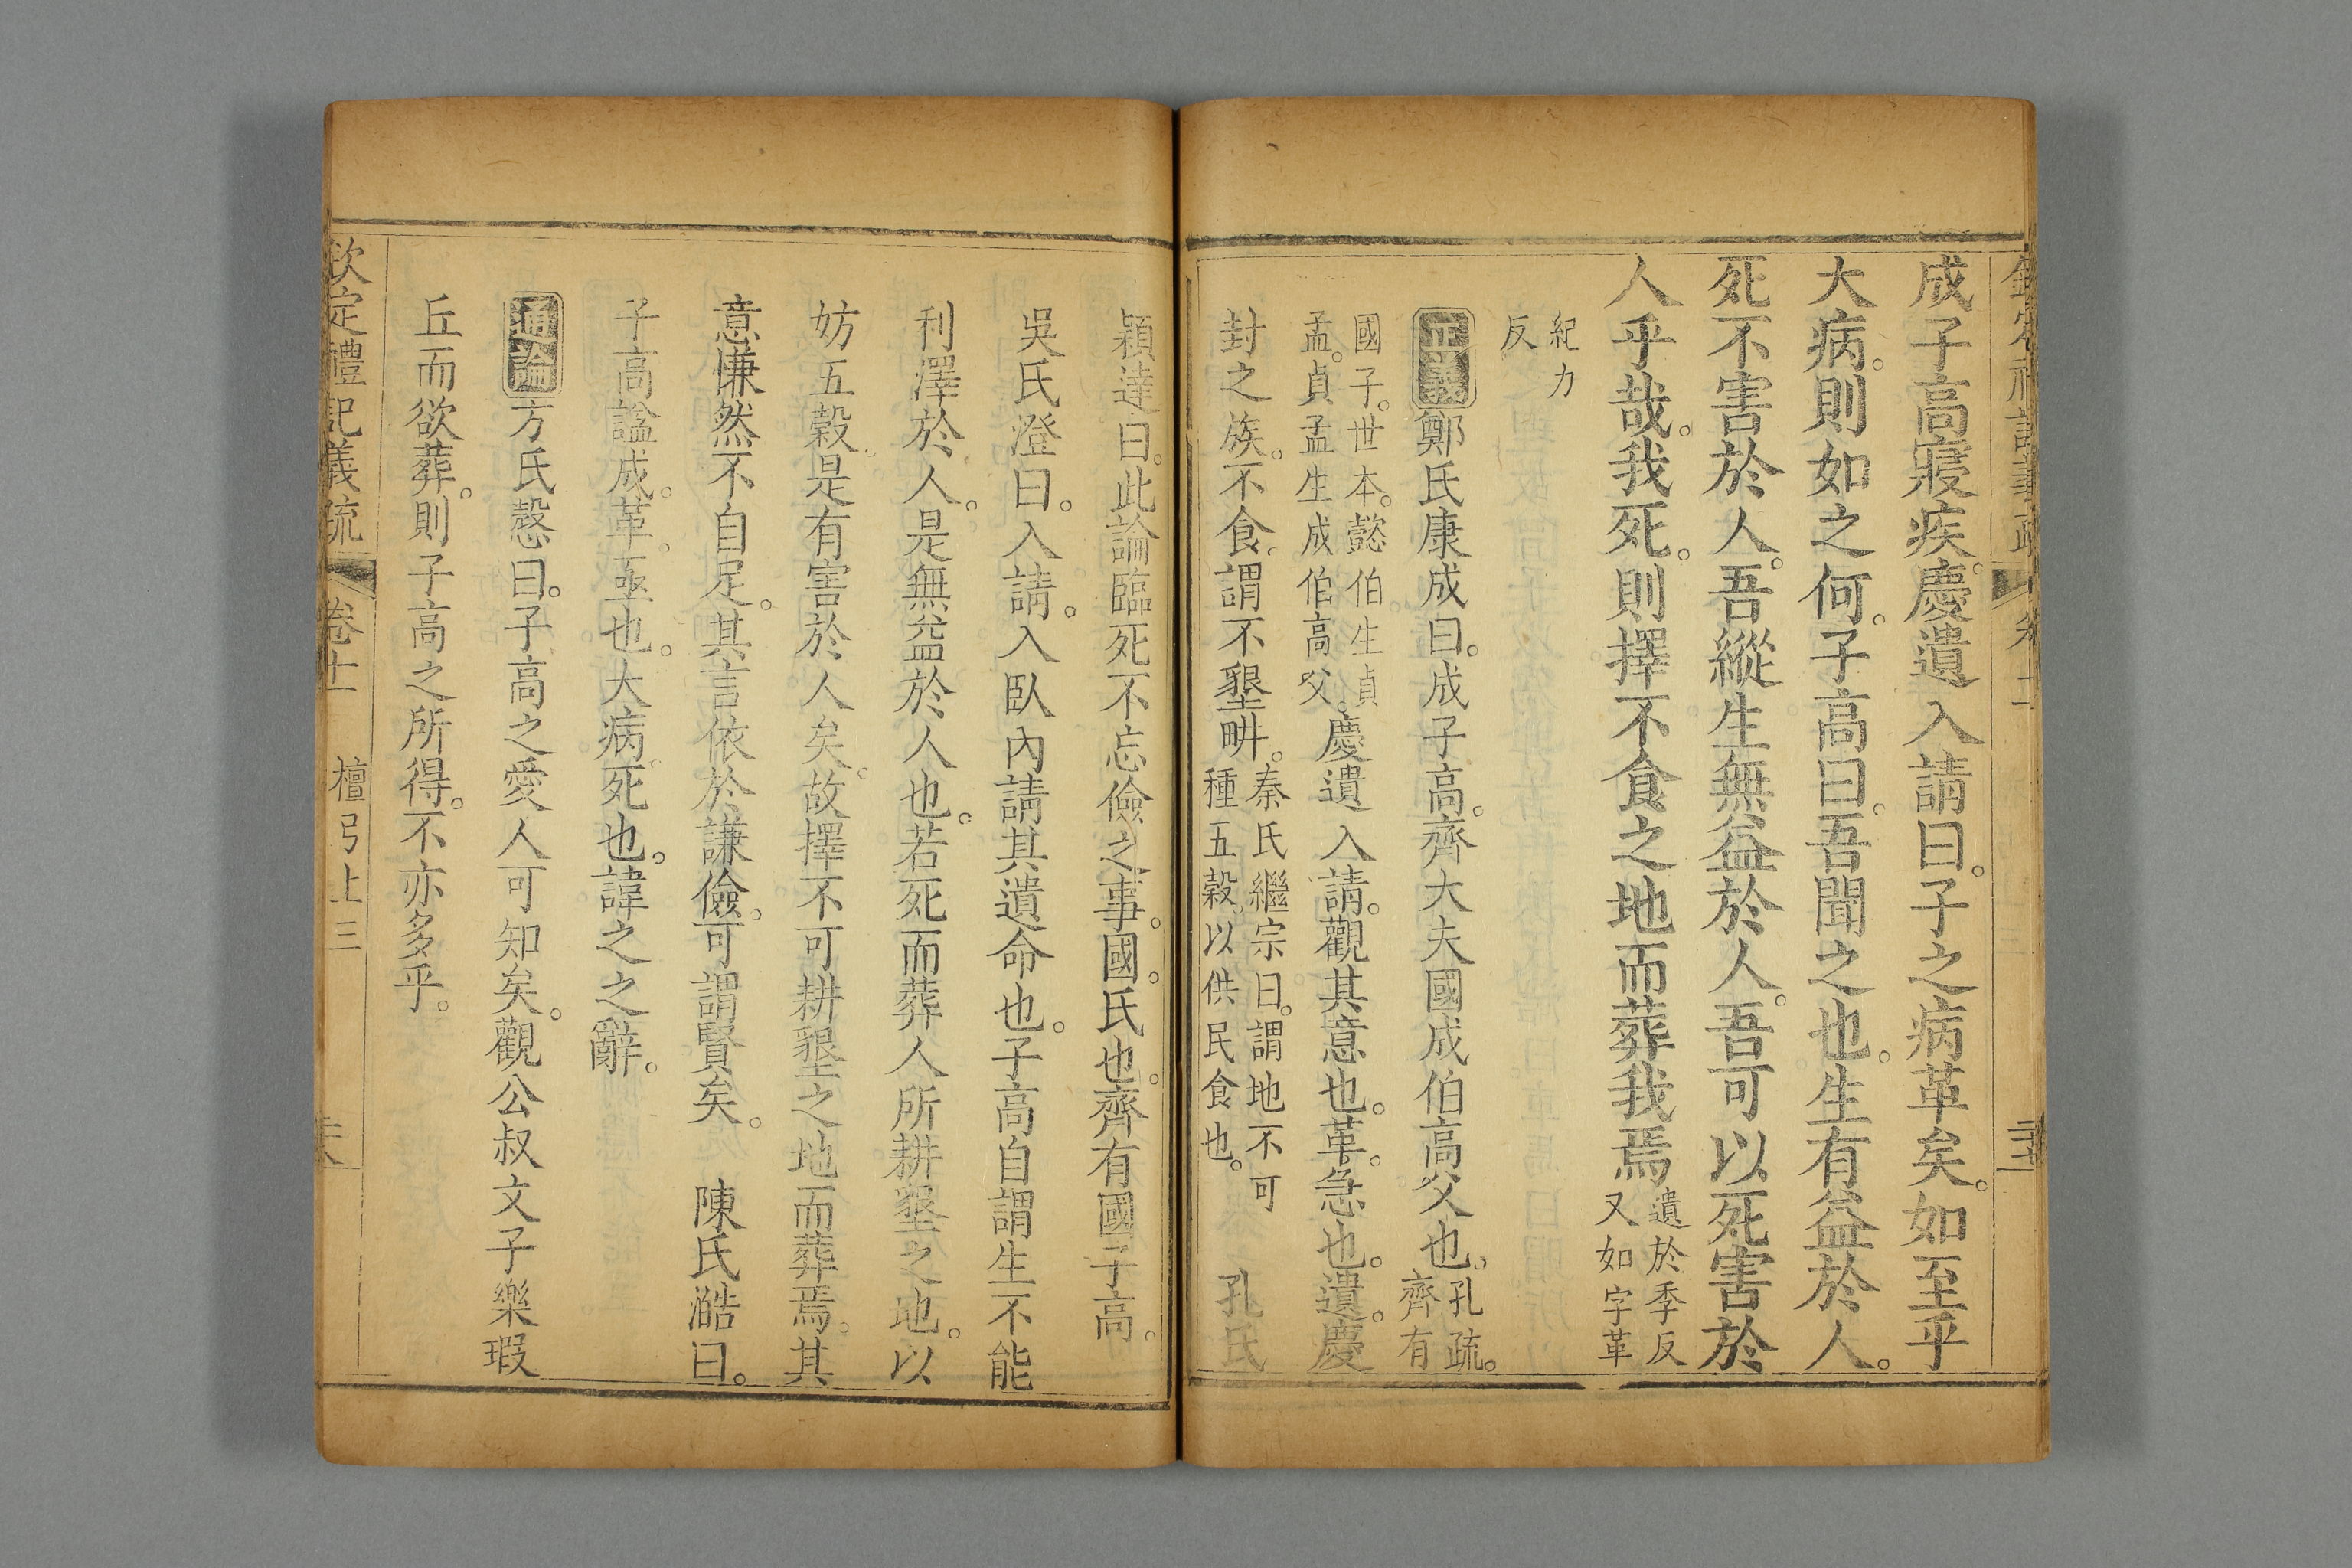 成子高寢疾。慶遺入請曰。子之病革矣。如至乎
大病。則如之何。子高曰。吾聞之也。生有益於人。
死不害於人。吾縱生無益於人。吾可以死害於
人乎哉。我死。則擇不食之地而葬我焉
遺於季反
又如字革
紀力
反
正義鄭氏康成曰。成子高。齊大夫國成伯高父也。
孔疏。
齊有
國子。世本。懿伯生貞
孟。貞孟生成伯高父。
慶遺入請。觀其意也。革。急也。遺。慶
封之族。不食。謂不墾畊。
秦氏繼宗曰。謂地不可
種五穀。以供民食也。
孔氏
穎達曰。此論臨死不忘儉之事。國。氏也。齊有國子高。
吳氏澄曰。入請。入臥內請其遺命也。子高自謂生不能
利澤於人。是無益於人也。若死而葬人所耕墾之地。以
妨五穀。是有害於人矣。故擇不可耕墾之地而葬焉。其
意慊然不自足。其言依於謙儉。可謂賢矣。 陳氏澔曰。
子高謚成。革。亟也。大病。死也。諱之之辭。
通論方氏慤曰。子高之愛人可知矣。觀公叔文子樂瑕
丘而欲葬。則子高之所得。不亦多乎。
欽定禮記義疏 卷十一 檀弓上三